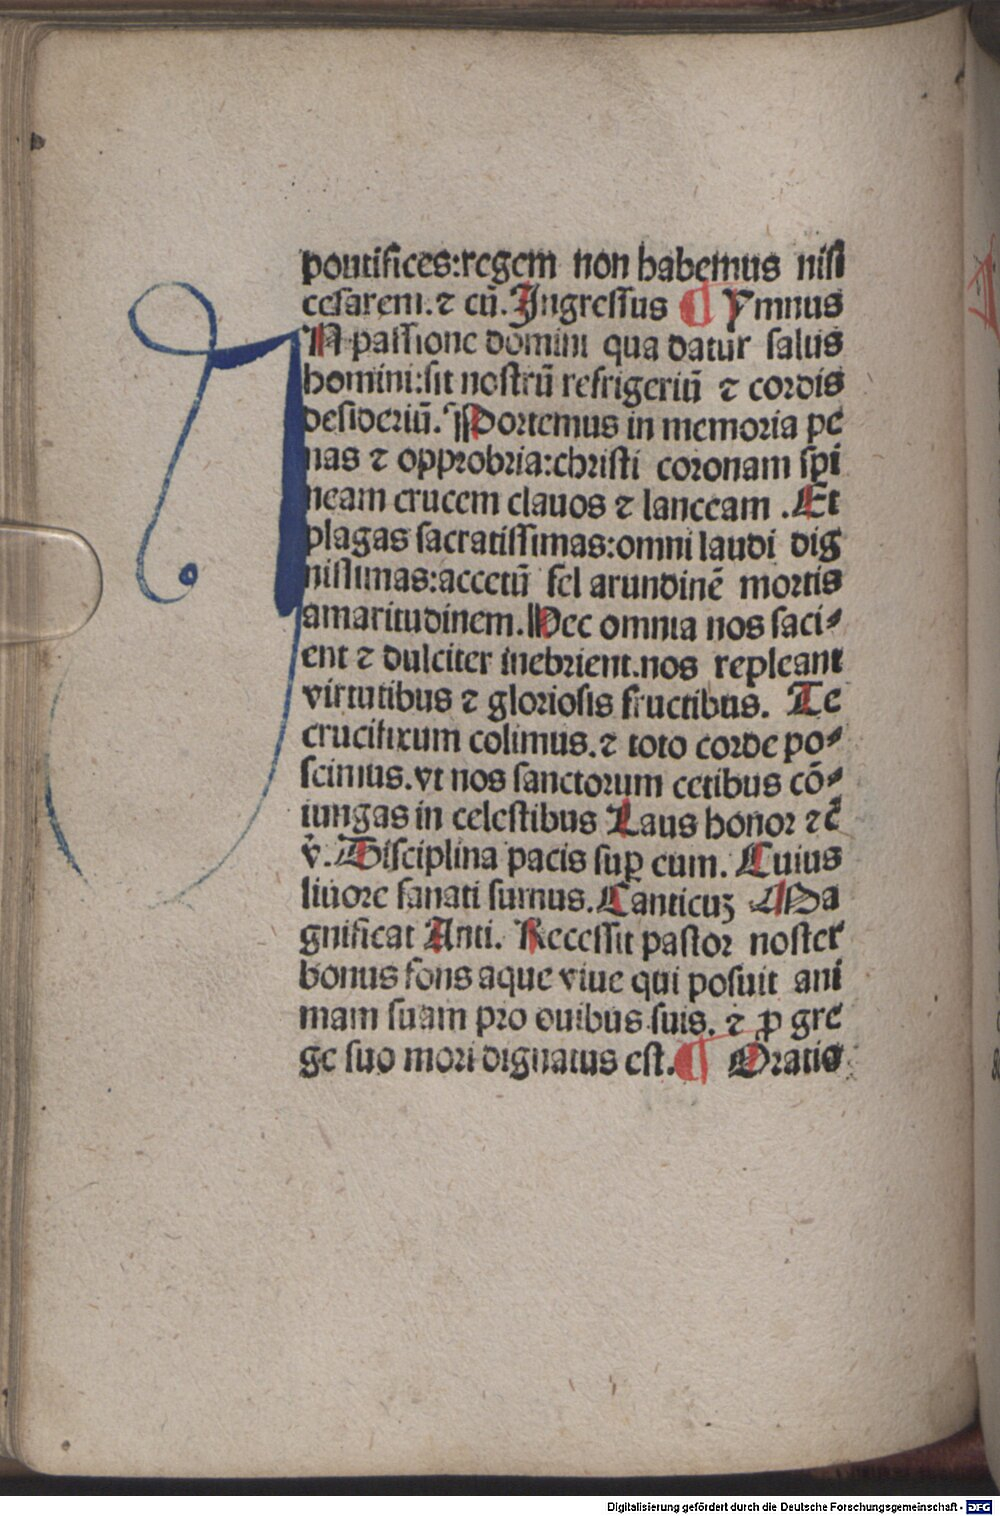 pontifices:regem non habemus nisi
cesarem.⁊ cū.Ingressus ¶ Ymnus
IN passione domini qua datur salus
homini:sit nostrū refrigeriū ⁊ cordis
desideriū. Portemus in memoria pe
nas ⁊ opprobria:christi coronam spi
neam crucem clauos ⁊ lanceam .Et
plagas sacratissimas:omni laudi dig
nissimas:accetū fel arundinē mortis
amaritudinem.Hec omnia nos saci⸗
ent ⁊ dulciter inebrient.nos repleant
virtutibus ⁊ gloriosis fructibus. Te
crucifixum colimus.⁊ toto corde po⸗
scimus.vt nos sanctorum cetibus cō⸗
iungas in celestibus Laus honor ⁊c̄
v̇.Disciplina pacis suꝑ eum. Cuius
liuore sanati sumus.Canticuꝫ Ma
gnificat Anti. Recessit pastor noster
bonus fons aque viue qui posuit ani
mam suam pro ouibus suis. ⁊ ꝓ gre
ge suo mori dignatus est.¶ Oratio
Digitalisierung gefördert durch die Deutsche Forschungsgemeinschaft - DFG